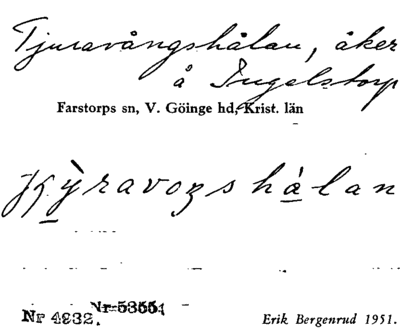 Tjuravångshålan, åker
å Ingelstorp
Farstorps sn, V. Göinge hd, Krist. län
Nr 53554
Nr 4932.
Erik Bergenrud 1951.